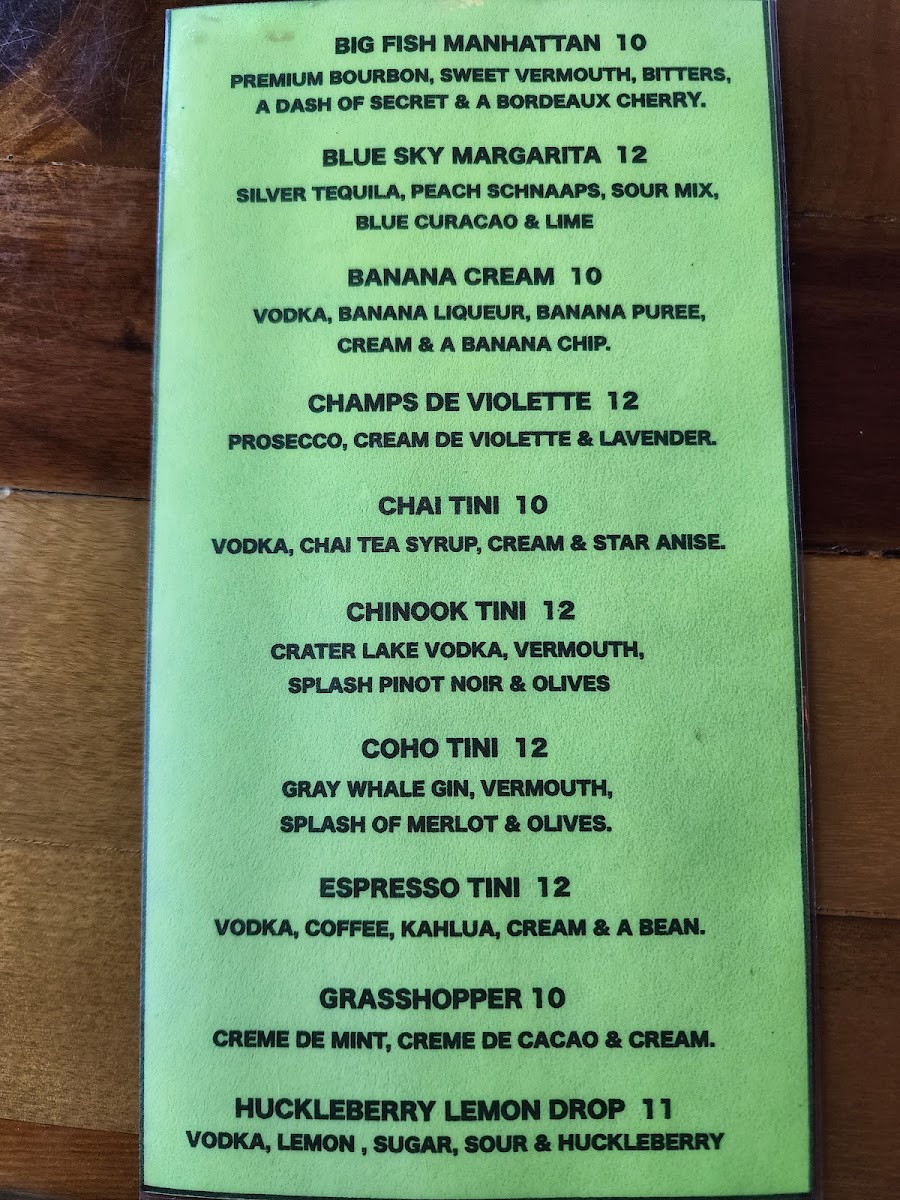 BIG FISH MANHATTAN 10
PREMIUM BOURBON, SWEET VERMOUTH, BITTERS,
A DASH OF SECRET & A BORDEAUX CHERRY.
BLUE SKY MARGARITA 12
SILVER TEQUILA, PEACH SCHNAAPS, SOUR MIX,
BLUE CURACAO & LIME
BANANA CREAM 10
VODKA, BANANA LIQUEUR, BANANA PUREE,
CREAM & A BANANA CHIP.
CHAMPS DE VIOLETTE 12
PROSECCO, CREAM DE VIOLETTE & LAVENDER.
CHAI TINI 10
VODKA, CHAI TEA SYRUP, CREAM & STAR ANISE.
CHINOOK TINI 12
CRATER LAKE VODKA, VERMOUTH,
SPLASH PINOT NOIR & OLIVES
COHO TINI 12
GRAY WHALE GIN, VERMOUTH,
SPLASH OF MERLOT & OLIVES.
ESPRESSO TINI 12
VODKA, COFFEE, KAHLUA, CREAM & A BEAN.
GRASSHOPPER 10
CREME DE MINT, CREME DE CACAO & CREAM.
HUCKLEBERRY LEMON DROP 11
VODKA, LEMON , SUGAR, SOUR & HUCKLEBERRY